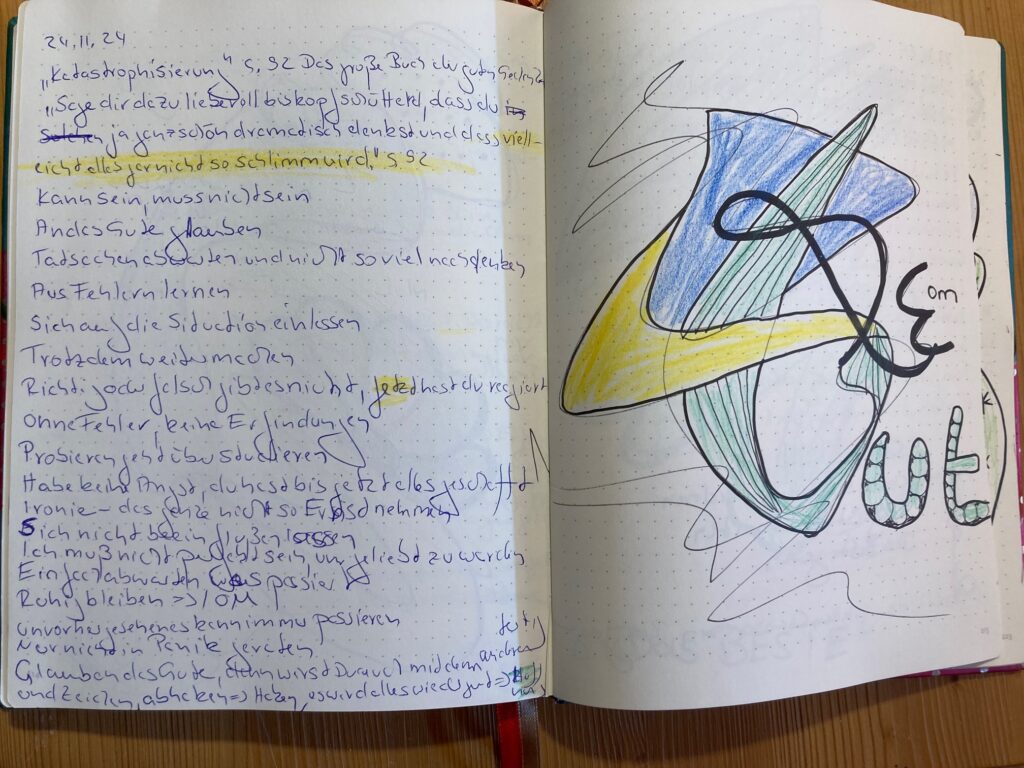 24.11.24
„Katastrophisierung" S. 92 Das große Buch der guten
„Sage dir dazu liebevoll kopfschüttelnd, dass du
ja ganz schön dramatisch denkst und dass viell-
eicht alles gar nicht so schlimm wird." S. 92
Kann sein, muss nicht sein
An das Gute glauben
Tatsachen abwarten und nicht so viel nachdenken
Aus Fehlern lernen
Sich auf die Situation einlassen
Trotzdem weitermachen
Richtig oder falsch gibt es nicht, jetzt hast du reagiert
Ohne Fehler, keine Erfindungen
Probieren geht über studieren
Habe keine Angst, du hast bis jetzt alles geschafft
Ironie – das ganze nicht so Ernst nehmen
Sich nicht beeinflußen lassen
Ich muß nicht perfekt sein um geliebt zu werden
Einfach abwarten was passiert
Ruhig bleiben => OM
unvorhergesehenes kann immer passieren
Nur nicht in Panik geraten
Glauben das Gute, dann wirst Du auch mit dem anderen fertig
und Zeichen, abhaken => Haken, es wird alles wieder gut =>
om
Gut